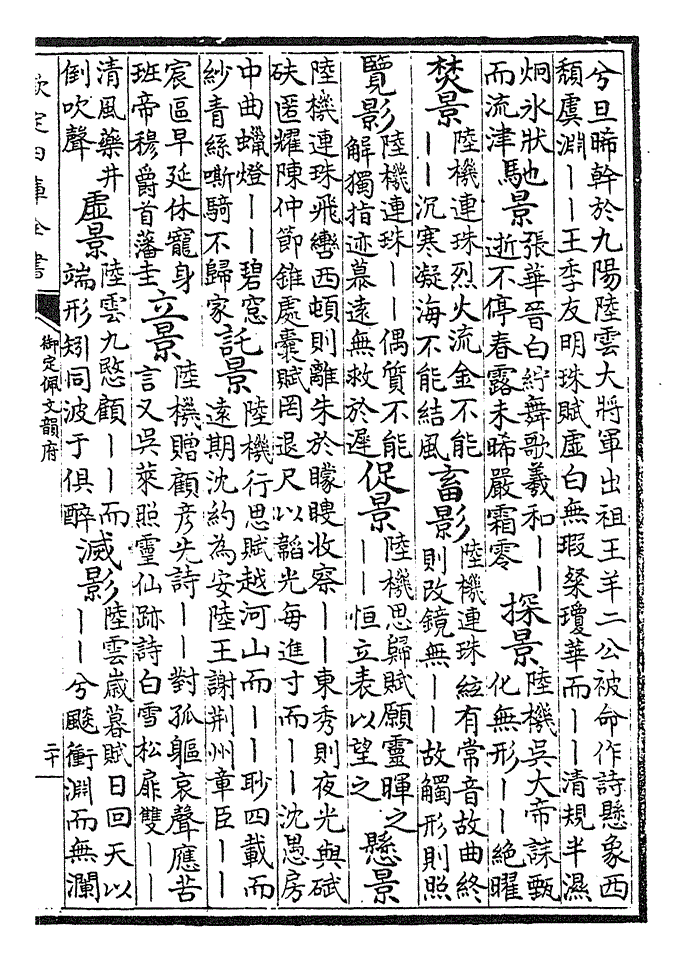 兮旦晞幹於九陽陸雲大將軍出祖王羊二公被命作詩懸象西
頽虞淵――王季友明珠賦虚白無瑕粲瓊華而――清規半濕
炯氷狀
而流津
馳景
張華晉白紵舞歌羲和――
逝不停春露未晞嚴霜零
探景
陸機吳大帝誄甄
化無形――絶曜
焚景
陸機連珠烈火流金不能
――沉寒凝海不能結風
畜影
陸機連珠絃有常音故曲終
則改鏡無――故觸形則照
覽影
陸機連珠――偶質不能
解獨指迹慕遠無救於遲
促景
陸機思歸賦願靈暉之
――恒立表以望之
懸景
陸機連珠飛轡西頓則離朱於矇瞍收察――東秀則夜光與碔
砆匿耀陳仲節錐處囊賦罔退尺以韜光每進寸而――沈愚房
中曲蠟燈――碧窓
紗青絲嘶騎不歸家
託景
陸機行思賦越河山而――眇四載而
遠期沈約為安陸王謝荆州章臣――
宸區早延休寵身
班帝穆爵首藩圭
立景
陸機贈顧彦先詩――對孤軀哀聲應苦
言又吳萊照靈仙跡詩白雪松扉雙――
清風藥井
倒吹聲
虚景
陸雲九愍顧――而
端形矧同波于俱醉
滅影
陸雲歲暮賦日回天以
――兮飈衝淵而無瀾
欽定四庫全書
御定佩文韻府
二十